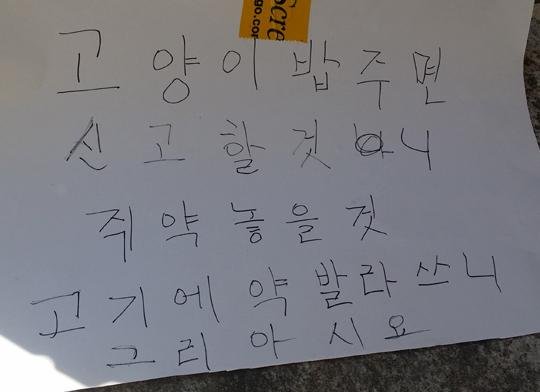 ocre
go.com
고양이밥주면
신고할것아니
쥐약놓을것
고기에약발라쓰니
그리아시요